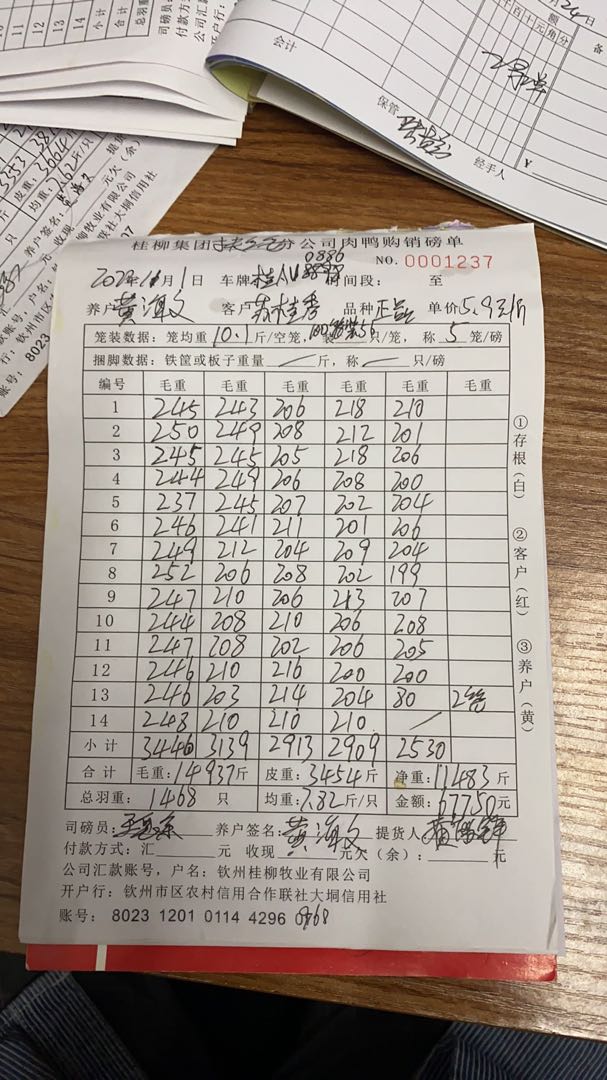 10 11 12 13 14 小计 合计 总羽重
司磅员:
付款方式:
公司汇款
开户行:
24日
额
千百十元角分
备
会计
保管
经手人
¥
皮重:
均重:
斤/只
养户签名:
收现
元欠(余)
牧业有限公司
联社大垌信用社
账号: 8023
桂柳集团 分公司肉鸭购销磅单
NO. 0001237
1日 车牌 时间段: 至
养户 黄海文 客户 苏桂秀 品种 正品 单价 5.9元/斤
笼装数据: 笼均重 10.1 斤/空笼, 装 只/笼, 称 5 笼/磅
捆脚数据: 铁筐或板子重量 斤, 称 只/磅
编号 毛重 毛重 毛重 毛重 毛重 毛重
1 245 243 206 218 210
2 250 249 208 212 201
3 245 245 205 218 206
4 244 249 206 208 200
5 237 245 207 202 204
6 246 241 211 201 206
7 249 212 204 209 204
8 252 206 208 202 199
9 247 210 206 213 207
10 244 208 210 206 208
11 247 208 202 206 205
12 246 210 216 200 200
13 246 203 214 204 80 2笼
14 248 210 210 210 /
小计 3446 3139 2913 2909 2530
合计 毛重: 14937斤 皮重: 3454斤 净重: 11483斤
总羽重: 1468 只 均重: 7.82斤/只 金额: 67750元
司磅员: 养户签名: 黄海文 提货人:
付款方式: 汇 元 收现 元欠(余): 元
公司汇款账号, 户名: 钦州桂柳牧业有限公司
开户行: 钦州市区农村信用合作联社大垌信用社
账号: 8023 1201 0114 4296 0168
①存根(白)
②客户(红)
③养户(黄)